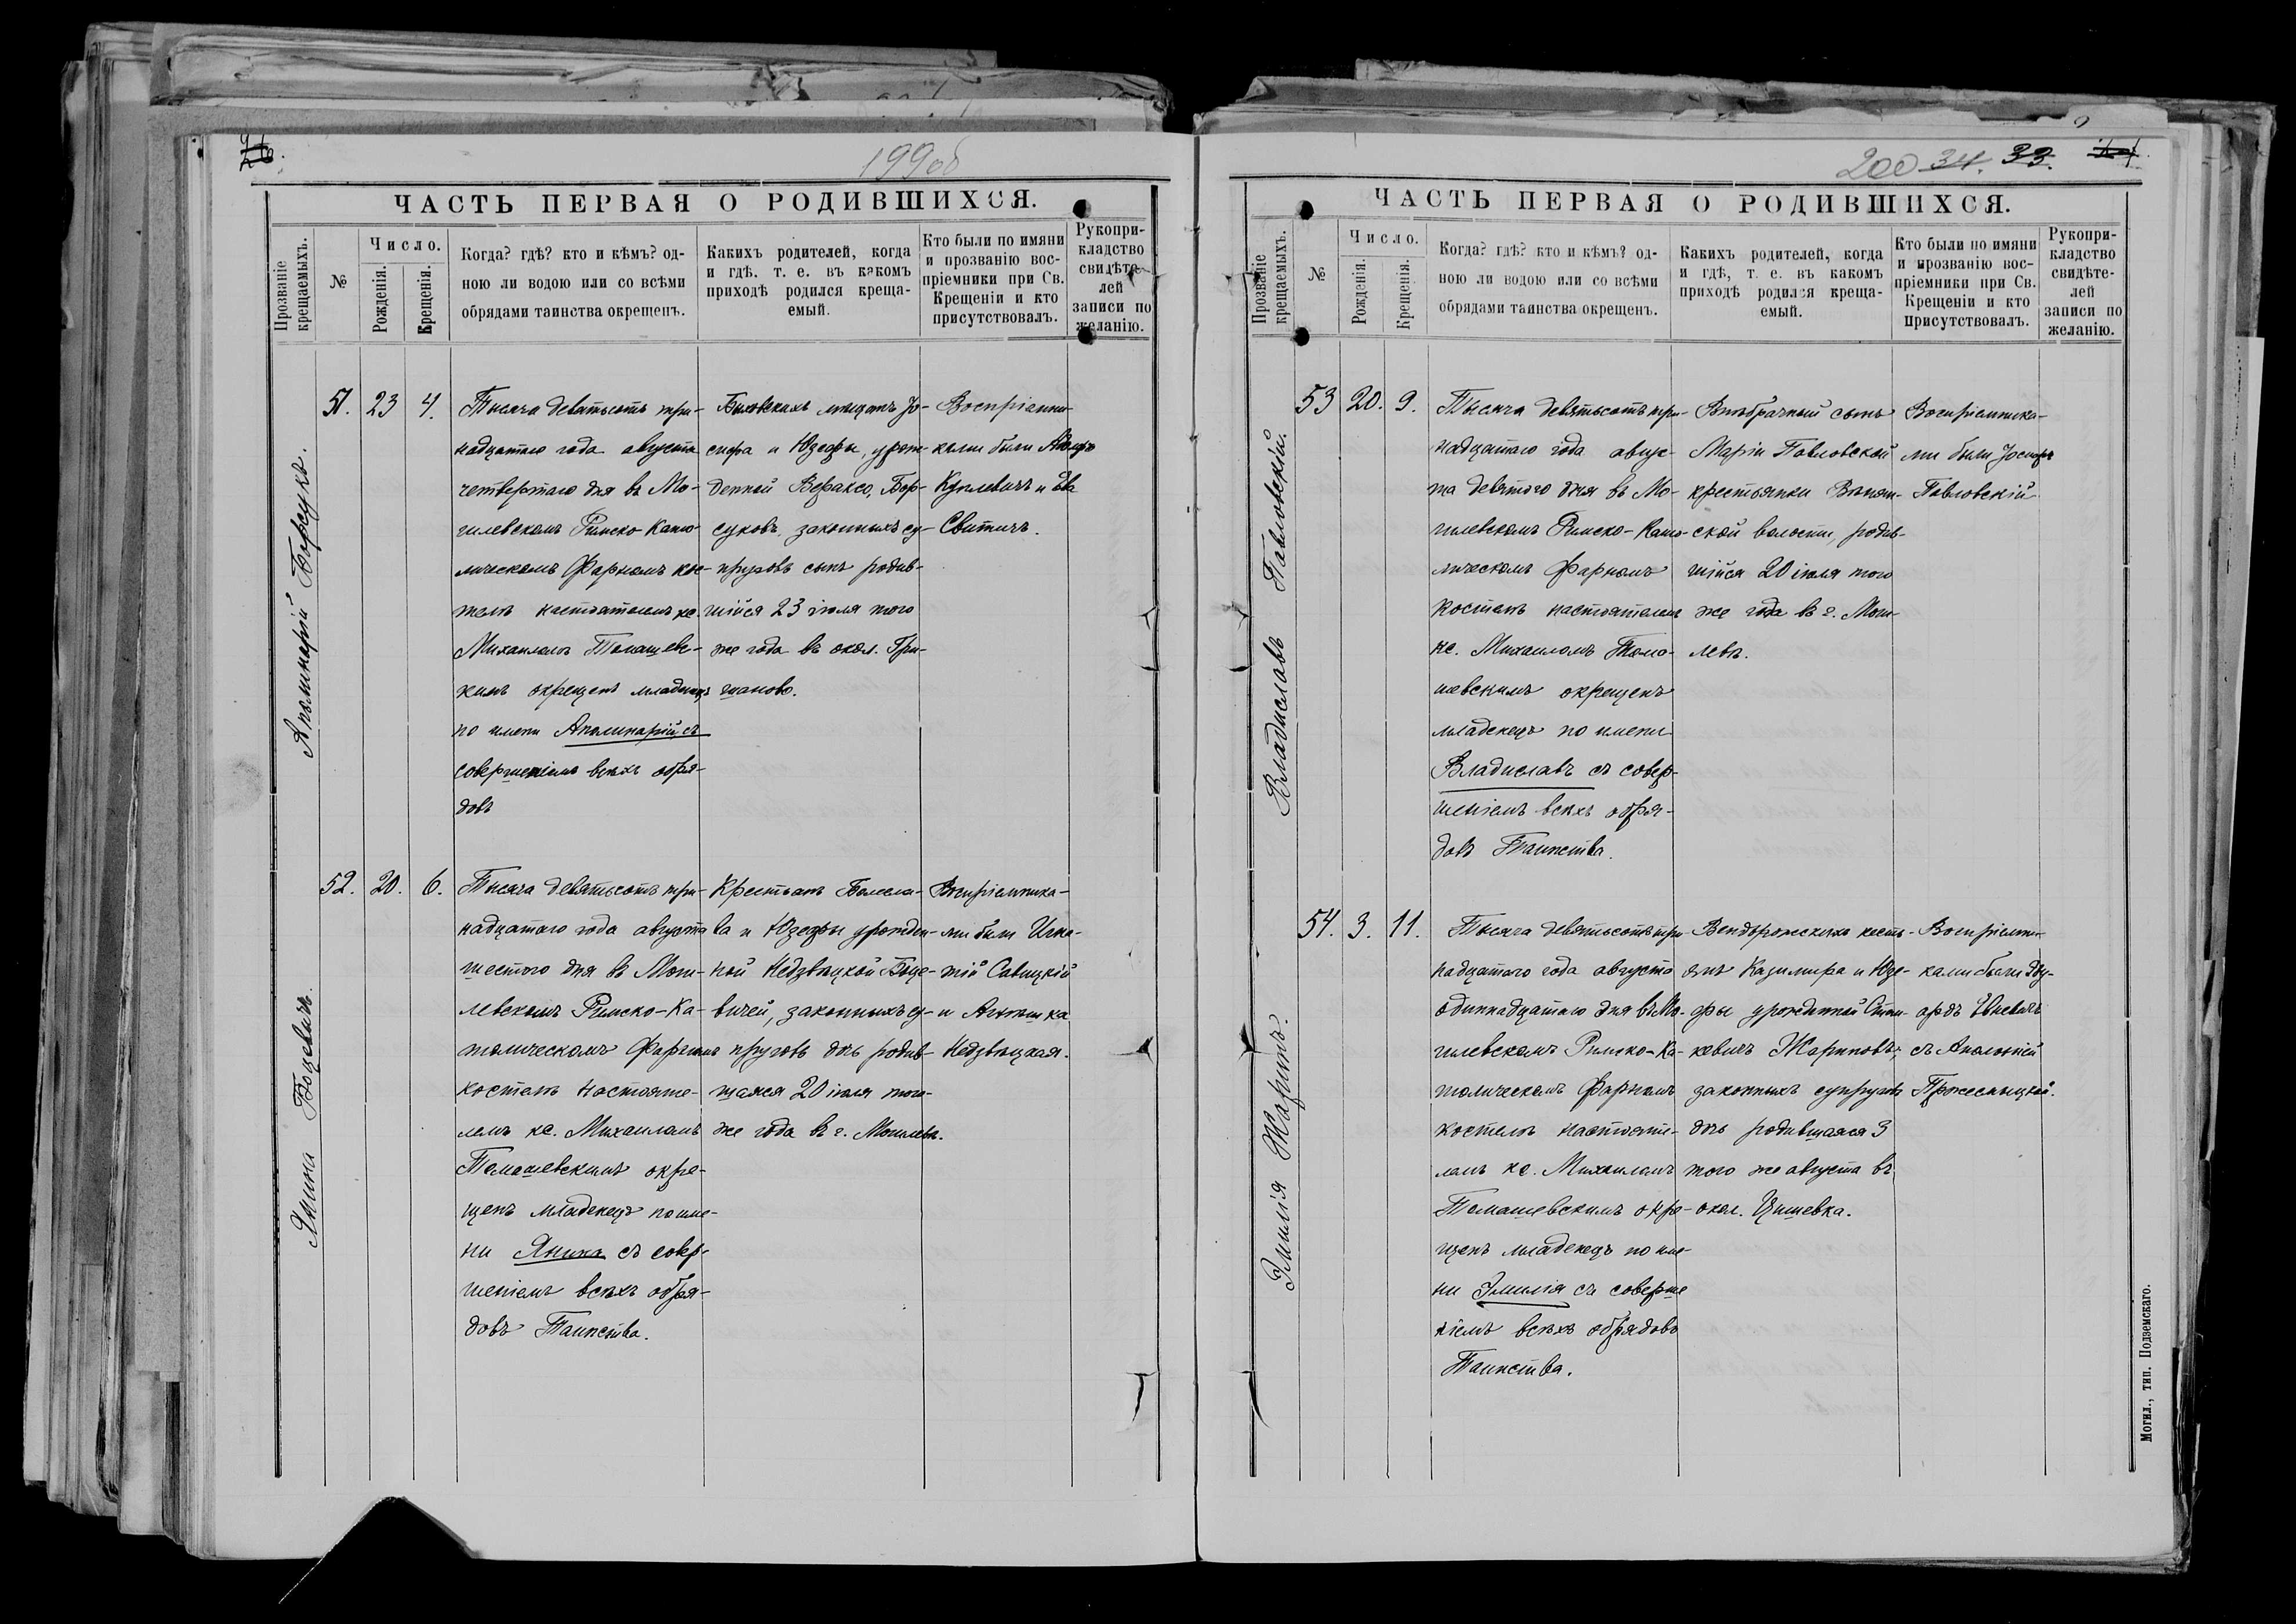 199об
ЧАСТЬ ПЕРВАЯ О РОДИВШИХСЯ.
Прозваніе крещаемыхъ.
№
Число.
Рожденія.
Крещенія.
Когда? гдѣ? кто и кѣмъ? од-
ною ли водою или со всѣми
обрядами таинства окрещенъ.
Какихъ родителей, когда
и гдѣ, т. е. въ какомъ
приходѣ родился креща-
емый.
Кто были по имяни
и прозванію вос-
пріемники при Св.
Крещеніи и кто
присутствовалъ.
Рукопри-
кладство
свидѣте-
лей
записи по
желанію.
Аполинарій Борсукъ.
51. 23 4.
Тысяча девятьсотъ три-
надцатаго года августа
четвертаго дня въ Мо-
гилевскомъ Римско Като-
лическомъ Фарномъ кос-
телѣ настоятелемъ кс.
Михаиломъ Томашевс-
кимъ окрещенъ младенецъ
по имени Аполинарій, съ
совершеніемъ всѣхъ обря-
довъ
Быховскихъ мѣщанъ Іо-
сифа и Юзефы, урож-
денной Вераксо, Бор-
суковъ, законныхъ су-
пруговъ сынъ родив-
шійся 23 іюля того
же года въ окол. Гри-
щаново.
Воспріемни-
ками были Адольфъ
Крулевичъ и Ева
Свитичъ.
Янина Боцевичъ.
52. 20. 6.
Тысяча девятьсотъ три-
надцатаго года августа
шестого дня въ Моги-
левскомъ Римско-Ка-
толическомъ Фарномъ
костелѣ настояте-
лемъ кс. Михаиломъ
Томашевскимъ окре-
щенъ младенецъ по име-
ни Янина съ совер-
шеніемъ всѣхъ обря-
довъ Таинства.
Крестьянъ Болесла-
ва и Юзефы урожден-
ной Недзвѣцкой Боце-
вичей, законныхъ су-
пруговъ дочь родив-
шаяся 20 іюля того-
же года въ г. Могилевѣ.
Воспріемника-
ми были Игна-
тій Савицкій
и Антошка
Недзвѣцкая.
200 34. 33.
ЧАСТЬ ПЕРВАЯ О РОДИВШИХСЯ.
Прозваніе крещаемыхъ.
№
Число.
Рожденія.
Крещенія.
Когда? гдѣ? кто и кѣмъ? од-
ною ли водою или со всѣми
обрядами таинства окрещенъ.
Какихъ родителей, когда
и гдѣ, т. е. въ какомъ
приходѣ родился креща-
емый.
Кто были по имяни
и прозванію вос-
пріемники при Св.
Крещеніи и кто
присутствовалъ.
Рукопри-
кладство
свидѣте-
лей
записи по
желанію.
Владиславъ Павловскій.
53 20. 9.
Тысяча девятьсотъ три-
надцатаго года авгус-
та девятого дня въ Мо-
гилевскомъ Римско-Като-
лическомъ Фарномъ
костелѣ настоятелемъ
кс. Михаиломъ Тома-
шевскимъ окрещенъ
младенецъ по имени
Владиславъ съ совер-
шеніемъ всѣхъ обря-
довъ Таинства.
Внѣбрачный сынъ
Маріи Павловской
крестьянки
ской волости, родив-
шійся 20 іюля того
же года въ г. Моги-
левѣ.
Воспріемника-
ми были Іосифъ
Павловскій
Эмилія Жаринъ.
54. 3. 11.
Тысяча девятьсотъ три-
надцатаго года августа
одиннадцатаго дня въ Мо-
гилевскомъ Римско-Ка-
толическомъ Фарномъ
костелѣ настояте-
лемъ кс. Михаиломъ
Томашевскимъ окре-
щенъ младенецъ по име-
ни Эмилія съ соверше
ніемъ всѣхъ обрядовъ
Таинства.
Вендорожскихъ кресть-
янъ Казимира и Юзе-
фы урожденной Стан-
кевичъ Жариновъ,
законныхъ супруговъ
дочь родившаяся 3
того же августа въ
окол. Цишевка.
Воспріемни-
ками были Эду-
ардъ
съ Аполоніей
Могил., тип. Подземскаго.